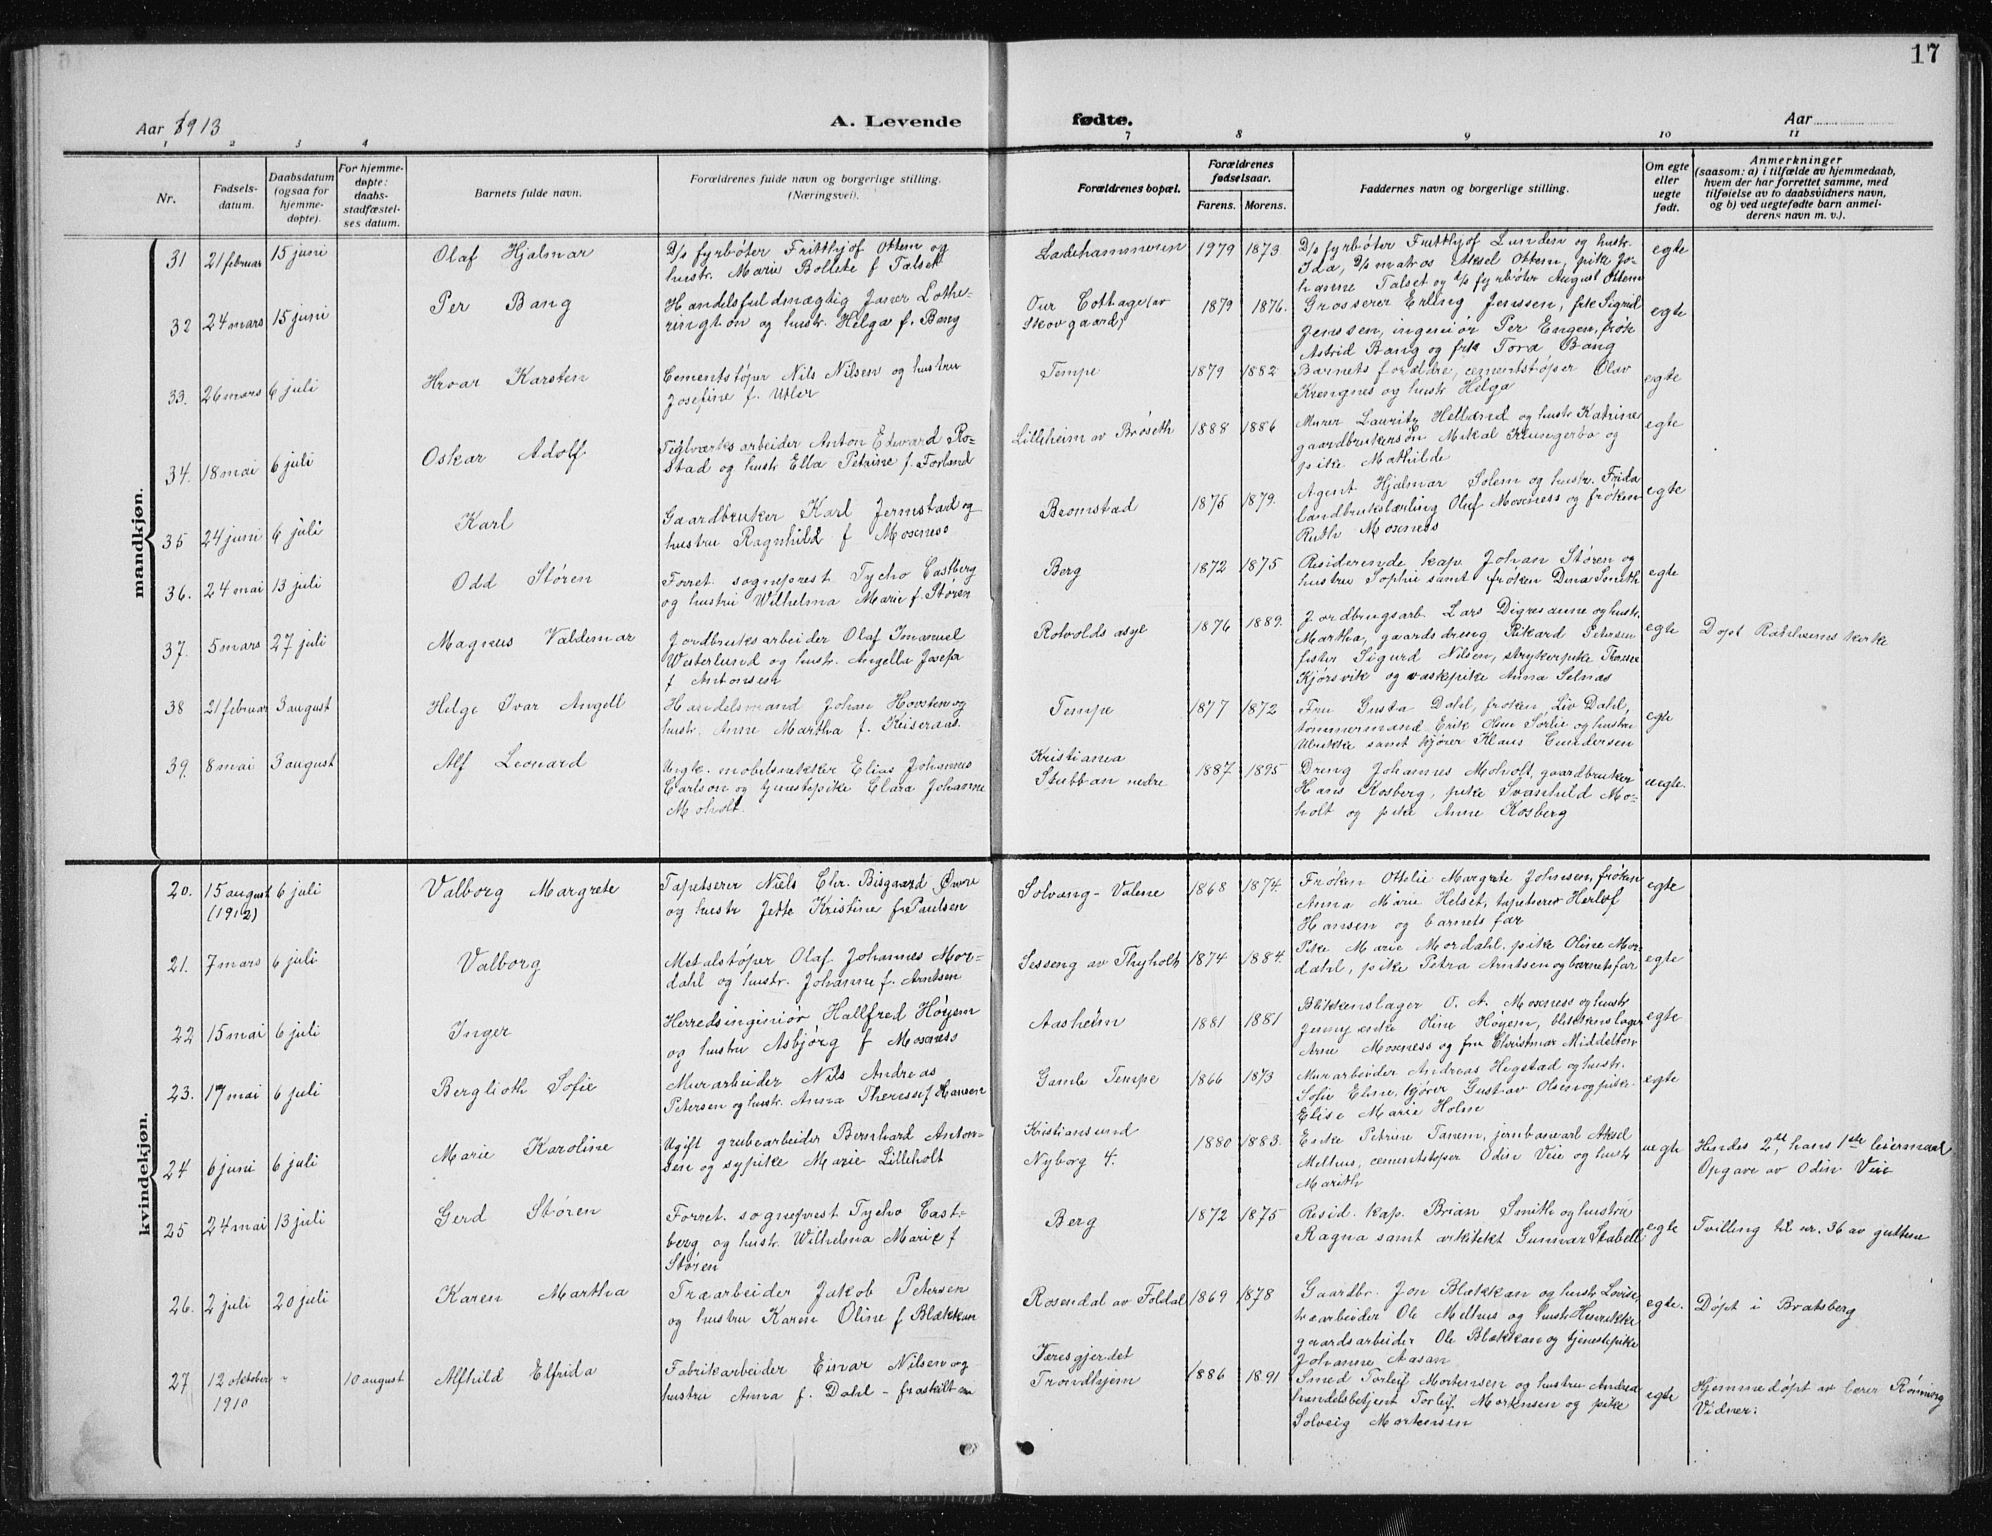 17
Aar 1913
A. Levende fødte.
Aar
1 2 3 4 7 8 9 10 11
Nr.
Fødsels-
datum.
Daabsdatum
(ogsaa for
hjemme-
døpte).
For hjemme-
døpte:
daabs-
stadfæstel-
ses datum.
Barnets fulde navn.
Forældrenes fulde navn og borgerlige stilling.
(Næringsvei).
Forældrenes bopæl.
Forældrenes
fødselsaar.
Farens. Morens.
Faddernes navn og borgerlige stilling.
Om egte
eller
uegte
født.
Anmerkninger
(saasom: a) i tilfælde av hjemmedaab,
hvem der har forrettet samme, med
tilføielse av to daabsvidners navn,
og b) ved uegtefødte barn anmel-
derens navn m. v.).
mandkjøn.
31 21 februar 15 juni
Olaf Hjalmar
D/s fyrbøter Fritthjof Ottem og
hustr. Marie Bollete f Talset
Ladehammeren
1979 1873
D/s fyrbøter Fritthjof Lundem og hustr.
Ida, D/s matros Aksel Ottem, pike Jo-
hanne Talset og D/s fyrbøter August Ottem
egte
32 24 mars 15 juni
Per Bang
Handelsfuldmægtig Janer Lothe-
rington og hustr. Helga f. Bang
Our Cottage (av
Skovgaard)
1879 1876.
Grosserer Erling Jenssen, frk Sigrid
Jenssen, ingeniør Per Engen, frøk
Astrid Bang og frk Tora Bang
egte
33. 26 mars 6 juli
Hroar Karsten
Cementstøper Nils Nilsen og hustru
Josefine f. Utler
Tempe
1879 1882
Barnets forældre, cementstøper Olav
Krengnes og hustr Helga
egte
34. 18 mai 6 juli
Oskar Adolf
Teglværksarbeider Anton Edvard Ro-
stad og hustr Ella Petrine f. Forland
Lillgheim av Brøseth
1888 1886
Murer Lauritz Helland og hustr Katrine
gaardbrukersøn Mikal Klungerbo og
pike Mathilde
egte
35 24 juni 6 juli
Karl
Gaardbruker Karl Jermstad og
hustru Ragnhild f Moxness
Bromstad
1875 1879.
Agent Hjalmar Solem og hustr. Frida
landbrukslærling Oluf Moxness og frøken
Ruth Moxness
egte
36. 24 mai 13 juli
Odd Støren
Forret. sogneprest Tycho Castberg
og hustru Wilhelma Marie f. Støren
Berg
1872 1875
Residerende kap. Johan Støren og
hustru Sophie samt frøken Dina Smith
egte
37. 5 mars 27 juli
Magnus Valdemar
Jordbruksarbeider Olaf Imanuel
Westerlund og hustr. Angella Josefa
f Antonsen
Rotvolds asyl
1876 1889.
Jordbrugsarb. Lars Digresanne og hustr.
Martha, gaardsdreng Rikard Petersen
fisker Sigurd Nilsen, strykerpike
Kjørsvik og vaskepike Anna Selnæs
egte
Døpt Ranheims kirke
38 21 februar 3 august
Helge Ivar Angell
Handelsmand Johan Hovsten og
hustr. Anne Martha f. Keiseraas
Tempe
1877 1872
Fru Gusta Dahl, frøken Liv Dahl,
tømmermand Erik Olsen Sørlie og hustru
Ulrikke samt kjører Klaus Gundersen
egte
39. 8 mai 3 august
Alf Leonard
Ungk. møbelsnekker Elias Johannes
Carlson og tjenestepike Clara Johanne
Moholt.
Kristiania
Stubban nedre
1887 1895
Dreng Johannes Moholt, gaardbruker
Hans Kosberg, pike Svanhild Mo-
holt og pike Anne Kosberg
uegte.
kvindekjøn.
20. 15 august (1912) 6 juli
Valborg Margrete
Tapetserer Niels Chr. Bisgaard Øvre
og hustr Jette Kristine f. Paulsen
Solvang - Valene
1868 1874.
Frøken Ottilie Margrete Johnsen, frøken
Anna Marie Helset, tapetserer Herlof
Hansen og barnets far
egte
21. 7 mars 6 juli
Valborg
Metalstøper Olaf Johannes Mor-
dahl og hustr. Johanne f. Arntsen
Sesseng av Thyholt
1874 1884.
Pike Marie Mordahl, pike Oline Mor-
dahl, pike Petra Arntsen og barnets far
egte
22 15 mai 6 juli
Inger
Herredsingeniør Hallfred Høyem
og hustru Asbjørg f Moxness
Aasheim
1881 1881
Blikkenslager O. A. Moxness og hustr
Jenny, enke Oline Høyem, blikkenslager
Arne Moxness og fru Christmar Middelton
egte
23. 17 mai 6 juli
Berglioth Sofie
Murarbeider Nils Andreas
Petersen og hustr. Anna Therese f Hansen
Gamle Tempe
1866 1873
Murarbeider Andreas Hegstad og hustr.
Sofie Eline, kjører Gustav Olsen og pike
Elise Marie Holm
egte
24 6 juni 6 juli
Marie Karoline
Ugift grubearbeider Bernhard Anton-
sen og sypike Marie Lilleholt
Kristiansund
Nyborg 4.
1880 1883.
Enke Petrine Tanem, jernbanearb Aksel
Melhus, cementstøper Odin Veie og hustr
Marith
uegte
Hendes 2det, hans 1ste leiermaal
Opgave av Odin Veie
25 24 mai 13 juli
Gerd Støren
Forret. sogneprest Tycho Cast-
berg og hustr. Wilhelma Marie f
Støren
Berg
1872 1875
Resid. kap. Brian Smith og hustru
Ragna samt arkitekt Gunnar Stabell
egte
Tvilling til nr. 36 av guttene
26. 2 juli 20 juli
Karen Martha
Træarbeider Jakob Petersen
og hustru Karen Oline f Blækkan
Rosendal av Foldal
1869 1878
Gaardbr. Jon Blækkan og hustr Lovise,
træarbeider Ole Melhus og hustr Henrikke
gaardsarbeider Ole Blækkan og tjenestepike
Johanne Aasan
egte.
Døpt i Bratsberg
27 12 oktober 1910 " 10 august
Alfhild Elfrida
Fabrikarbeider Einar Nilsen og
hustru Anna f. Dahl - fraskilt
Væresgjerdet
Trondhjem
1886 1891
Smed Torleif Mortensen og hustru Andrea
handelsbetjent Torleif Mortensen og pike
Solveig Mortensen
egte
Hjemmedøpt av lærer Rønning
Vidner: